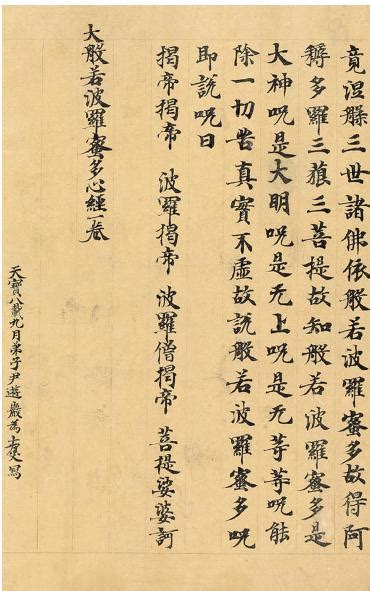 竟涅槃三世諸佛依般若波羅蜜多故得阿
耨多羅三藐三菩提故知般若波羅蜜多是
大神呪是大明呪是无上呪是无等等呪能
除一切苦真實不虛故說般若波羅蜜多呪
即說呪曰
揭帝揭帝 波羅揭帝 波羅僧揭帝 菩提娑婆訶
大般若波羅蜜多心經一卷
天寶八載九月弟子尹遊巖為寫